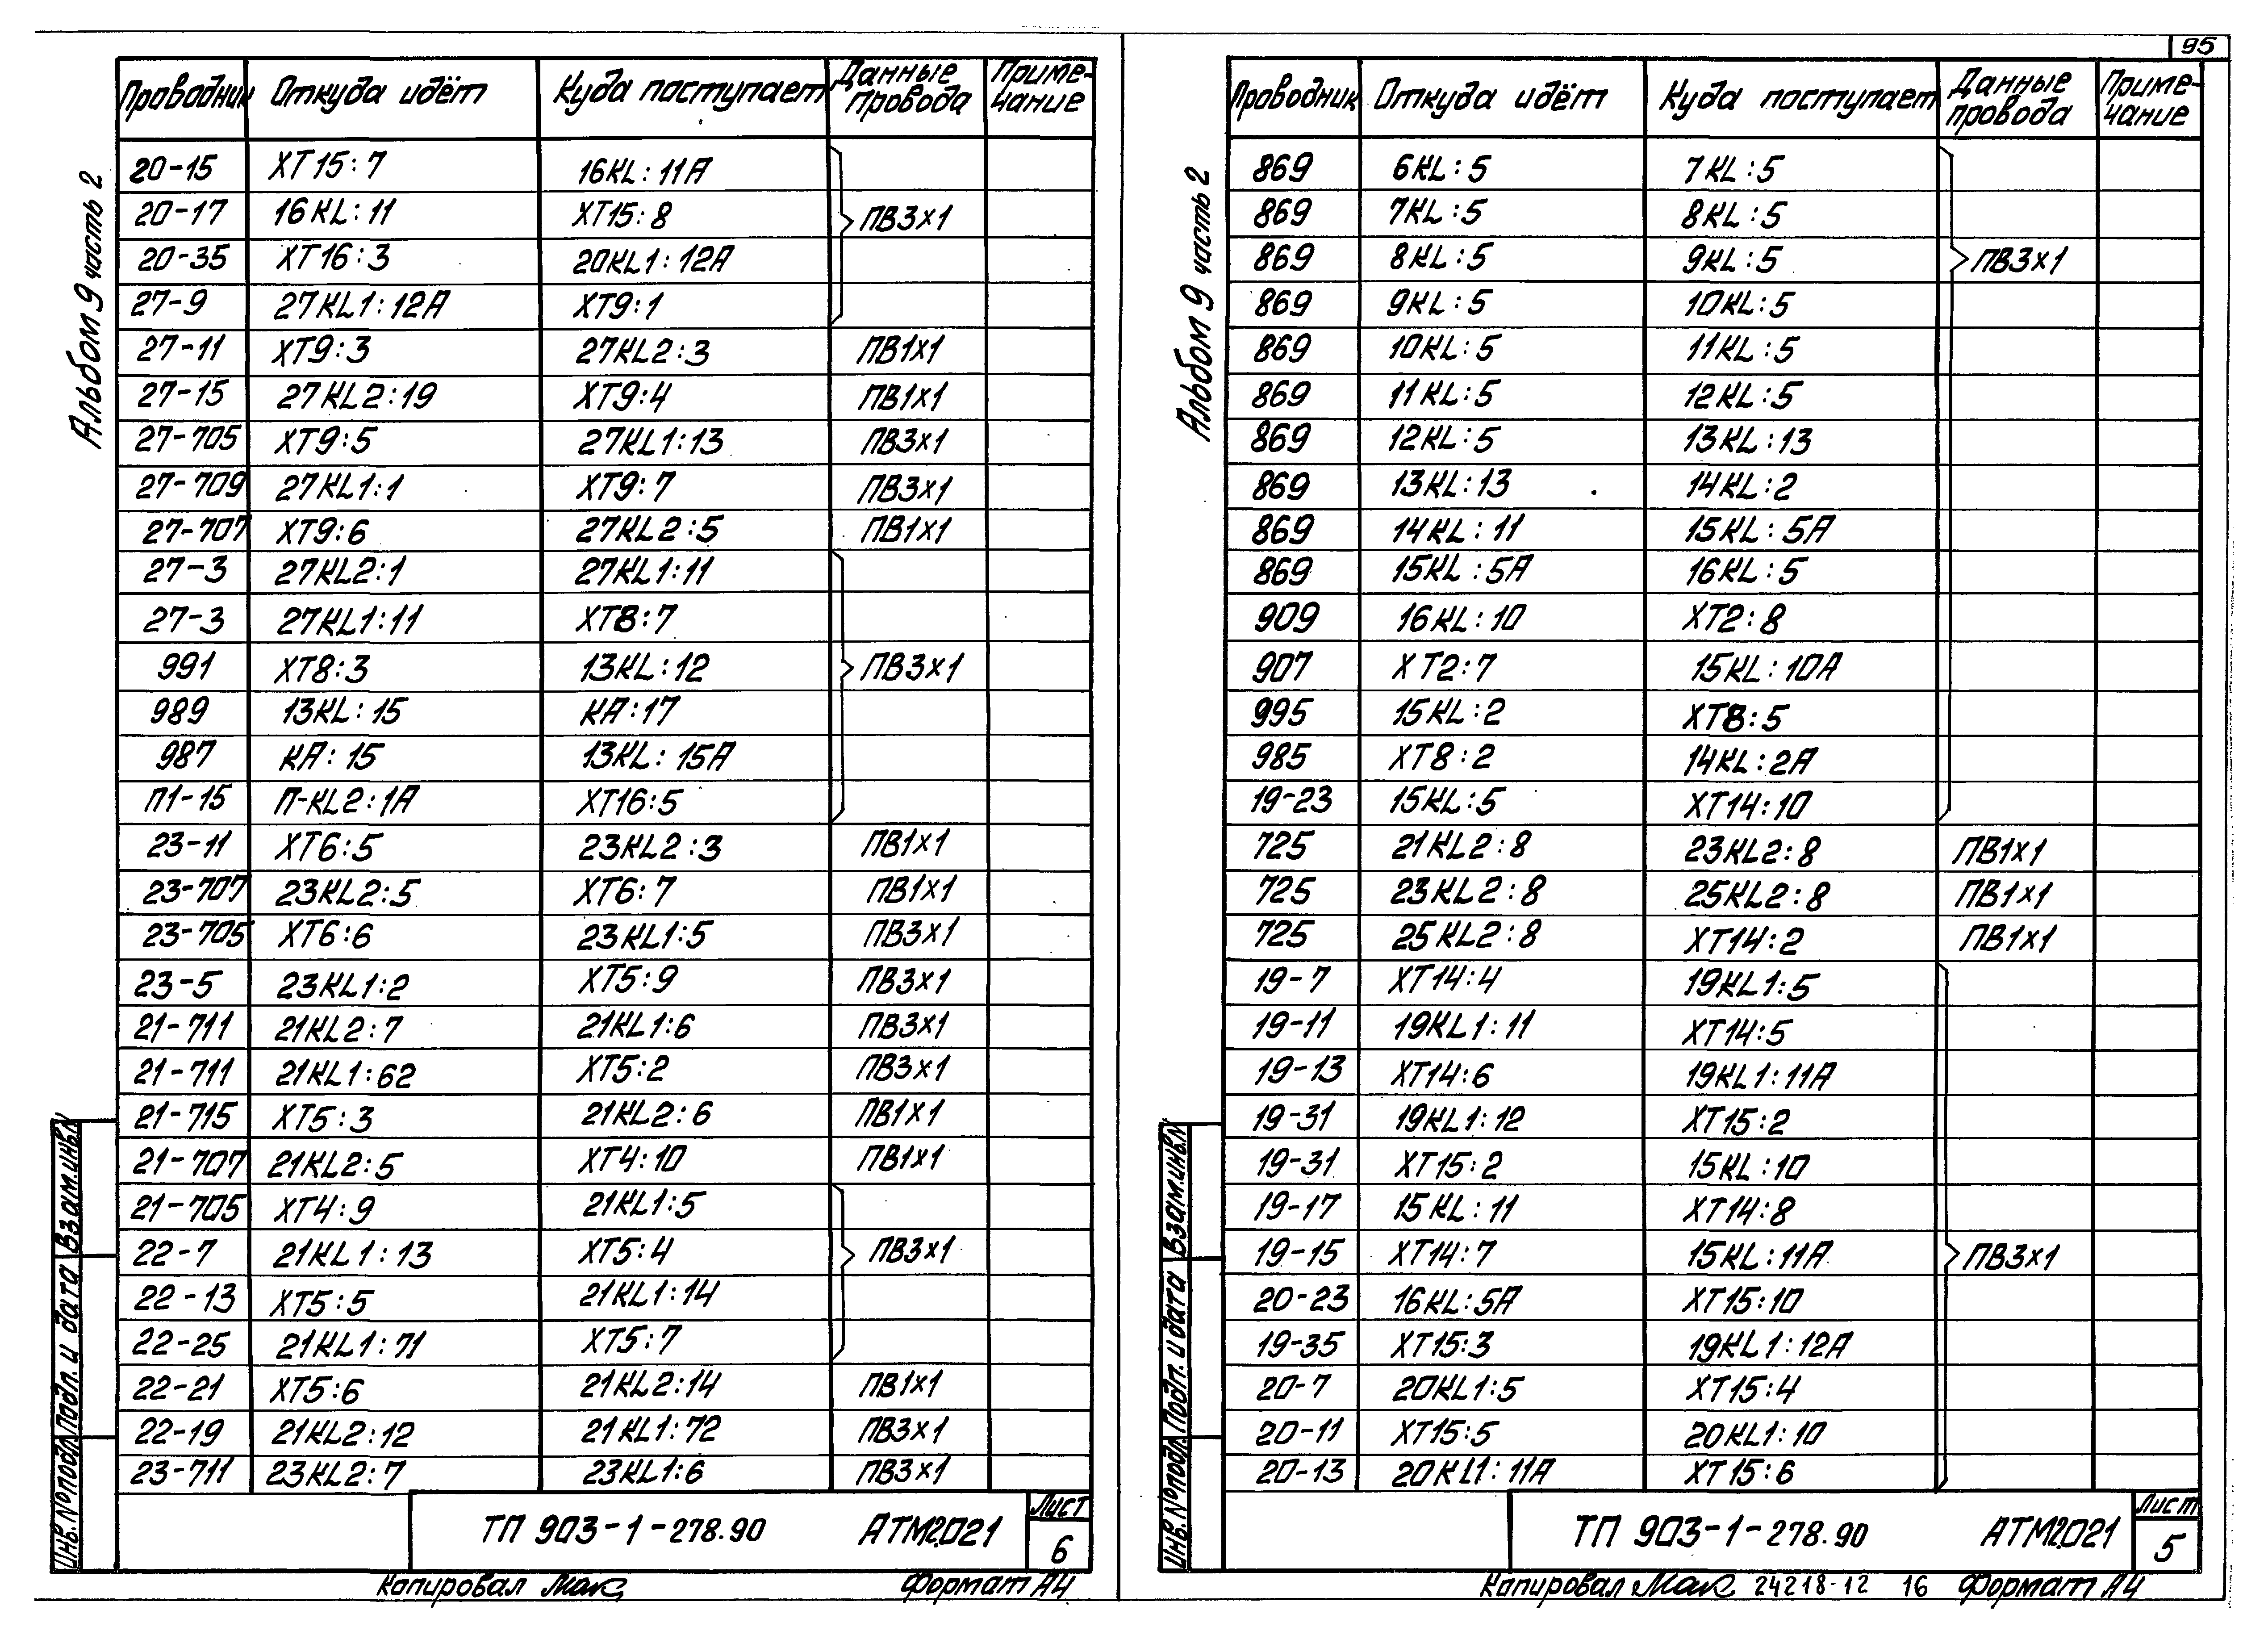 95
Альбом 9 часть 2
Проводник Откуда идёт Куда поступает Данные провода Приме-чание
20-15 ХТ15:7 16KL:11А
20-17 16KL:11 ХТ15:8 ПВ3х1
20-35 ХТ16:3 20KL1:12А
27-9 27KL1:12А ХТ9:1
27-11 ХТ9:3 27KL2:3 ПВ1х1
27-15 27KL2:19 ХТ9:4 ПВ1х1
27-705 ХТ9:5 27KL1:13 ПВ3х1
27-709 27KL1:1 ХТ9:7 ПВ3х1
27-707 ХТ9:6 27KL2:5 ПВ1х1
27-3 27KL2:1 27KL1:11
27-3 27KL1:11 ХТ8:7
991 ХТ8:3 13KL:12 ПВ3х1
989 13KL:15 КА:17
987 КА:15 13KL:15А
П1-15 П-KL2:1А ХТ16:5
23-11 ХТ6:5 23KL2:3 ПВ1х1
23-707 23KL2:5 ХТ6:7 ПВ1х1
23-705 ХТ6:6 23KL1:5 ПВ3х1
23-5 23KL1:2 ХТ5:9 ПВ3х1
21-711 21KL2:7 21KL1:6 ПВ3х1
21-711 21KL1:62 ХТ5:2 ПВ3х1
21-715 ХТ5:3 21KL2:6 ПВ1х1
21-707 21KL2:5 ХТ4:10 ПВ1х1
21-705 ХТ4:9 21KL1:5
22-7 21KL1:13 ХТ5:4 ПВ3х1
22-13 ХТ5:5 21KL1:14
22-25 21KL1:71 ХТ5:7
22-21 ХТ5:6 21KL2:14 ПВ1х1
22-19 21KL2:12 21KL1:72 ПВ3х1
23-711 23KL2:7 23KL1:6 ПВ3х1
Инв.№подл. Подп. и дата Взам.инв.№
ТП 903-1-278.90 АТМ2.021 Лист 6
Копировал Мак Формат А4
Альбом 9 часть 2
Проводник Откуда идёт Куда поступает Данные провода Приме-чание
869 6KL:5 7KL:5
869 7KL:5 8KL:5
869 8KL:5 9KL:5 ПВ3х1
869 9KL:5 10KL:5
869 10KL:5 11KL:5
869 11KL:5 12KL:5
869 12KL:5 13KL:13
869 13KL:13 14KL:2
869 14KL:11 15KL:5А
869 15KL:5А 16KL:5
909 16KL:10 ХТ2:8
907 ХТ2:7 15KL:10А
995 15KL:2 ХТ8:5
985 ХТ8:2 14KL:2А
19-23 15KL:5 ХТ14:10
725 21KL2:8 23KL2:8 ПВ1х1
725 23KL2:8 25KL2:8 ПВ1х1
725 25KL2:8 ХТ14:2 ПВ1х1
19-7 ХТ14:4 19KL1:5
19-11 19KL1:11 ХТ14:5
19-13 ХТ14:6 19KL1:11А
19-31 19KL1:12 ХТ15:2
19-31 ХТ15:2 15KL:10
19-17 15KL:11 ХТ14:8
19-15 ХТ14:7 15KL:11А ПВ3х1
20-23 16KL:5А ХТ15:10
19-35 ХТ15:3 19KL1:12А
20-7 20KL1:5 ХТ15:4
20-11 ХТ15:5 20KL1:10
20-13 20KL1:11А ХТ15:6
Инв.№подл. Подп. и дата Взам.инв.№
ТП 903-1-278.90 АТМ2.021 Лист 5
Копировал Мак 24218-12 16 Формат А4